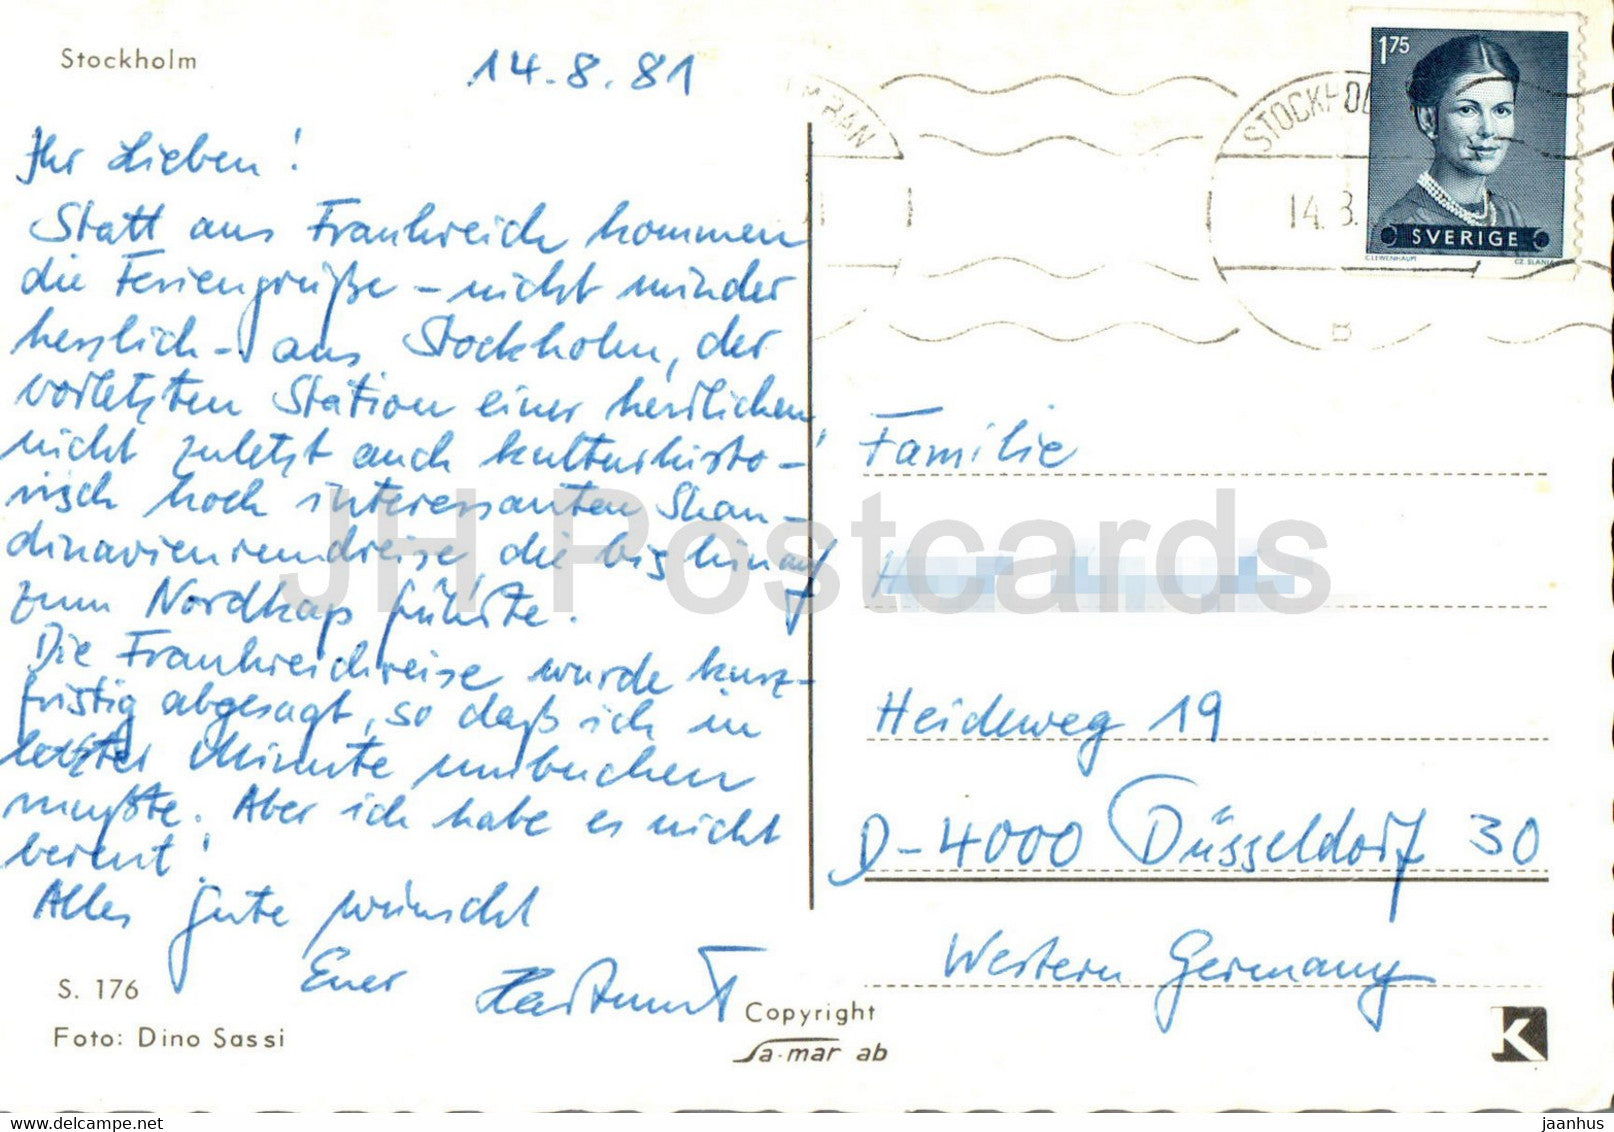 Stockholm
14.8.81
Ihr Lieben!
Statt aus Frankreich kommen
die Feriengrüße – nicht minder
herzlich – aus Stockholm, der
vorletzten Station einer herrlichen,
nicht zuletzt auch kulturhisto-
risch hoch interessanten Skan-
dinavienrundreise die bis hinauf
zum Nordkap führte.
Die Frankreichreise wurde kurz-
fristig abgesagt, so daß ich in
letzter Minute umbuchen
mußte. Aber ich habe es nicht
bereut!
Alles Gute wünscht
Euer Hartmut
S. 176
Foto: Dino Sassi
Copyright
Sa-mar ab
STOCKHOL
14.8.
B
BAN
1.75
SVERIGE
C. LEWENHAUPT
CZ. SLANIA
Familie
H
Heideweg 19
D-4000 Düsseldorf 30
Western Germany
K
JH Postcards
www.delcampe.net
jaanhus